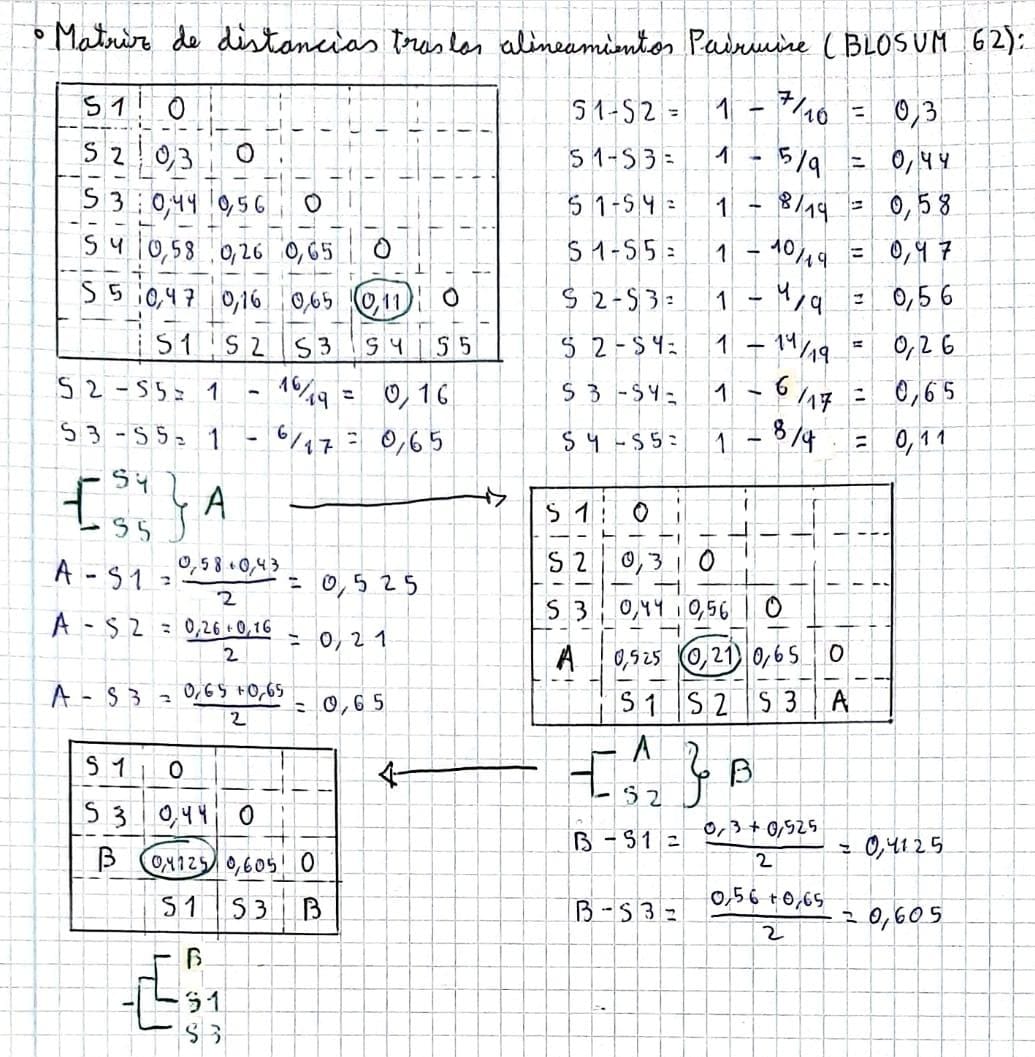 • Matriz de distancias tras los alineamientos Pairwise (BLOSUM 62):
S1 0
S2 0,3 0
S3 0,44 0,56 0
S4 0,58 0,26 0,65 0
S5 0,47 0,16 0,65 0,11 0
S1 S2 S3 S4 S5
S1-S2 = 1 - 7/10 = 0,3
S1-S3 = 1 - 5/9 = 0,44
S1-S4 = 1 - 8/19 = 0,58
S1-S5 = 1 - 10/19 = 0,47
S2-S3 = 1 - 4/9 = 0,56
S2-S4 = 1 - 14/19 = 0,26
S3-S4 = 1 - 6/17 = 0,65
S4-S5 = 1 - 8/9 = 0,11
S2-S5 = 1 - 16/19 = 0,16
S3-S5 = 1 - 6/17 = 0,65
S4
S5 } A
A-S1 = 0,58+0,43 / 2 = 0,525
A-S2 = 0,26+0,16 / 2 = 0,21
A-S3 = 0,65+0,65 / 2 = 0,65
S1 0
S2 0,3 0
S3 0,44 0,56 0
A 0,525 0,21 0,65 0
S1 S2 S3 A
A
S2 } B
B-S1 = 0,3+0,525 / 2 = 0,4125
B-S3 = 0,56+0,65 / 2 = 0,605
S1 0
S3 0,44 0
B 0,4125 0,605 0
S1 S3 B
B
S1
S3